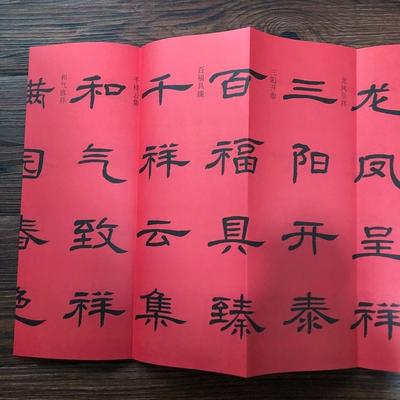 龙凤呈祥
龙凤呈祥
三阳开泰
三阳开泰
百福具臻
百福具臻
千祥云集
千祥云集
和气致祥
和气致祥
满园春色